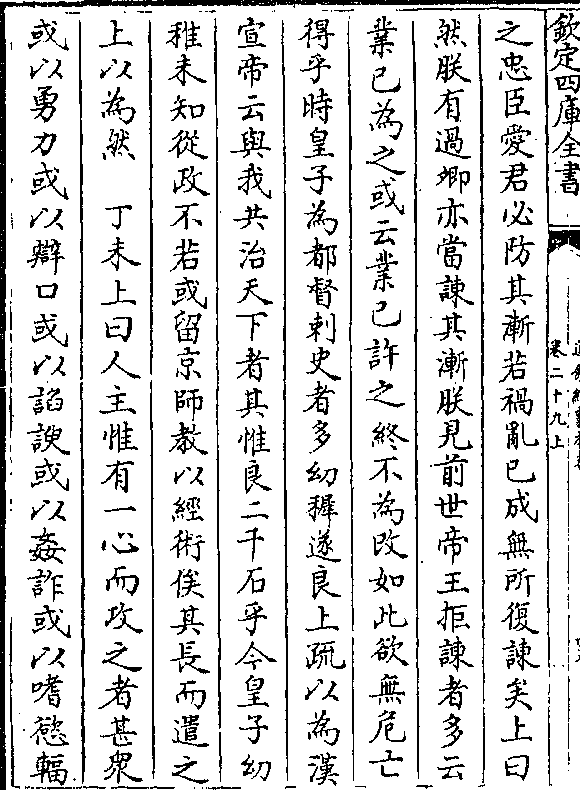 欽定四庫全書
卷二十九上
之忠臣愛君必防其漸若禍亂已成無所復諫矣上曰
然朕有過卿亦當諫其漸朕見前世帝王拒諫者多云
業已為之或云業已許之終不為改如此欲無危亡
得乎時皇子為都督刺史者多幼穉遂良上疏以為漢
宣帝云與我共治天下者其惟良二千石乎今皇子幼
稚未知從政不若或留京師教以經術俟其長而遣之
上以為然　丁未上曰人主惟有一心而攻之者甚衆
或以勇力或以辯口或以諂諛或以姦詐或以嗜慾輻